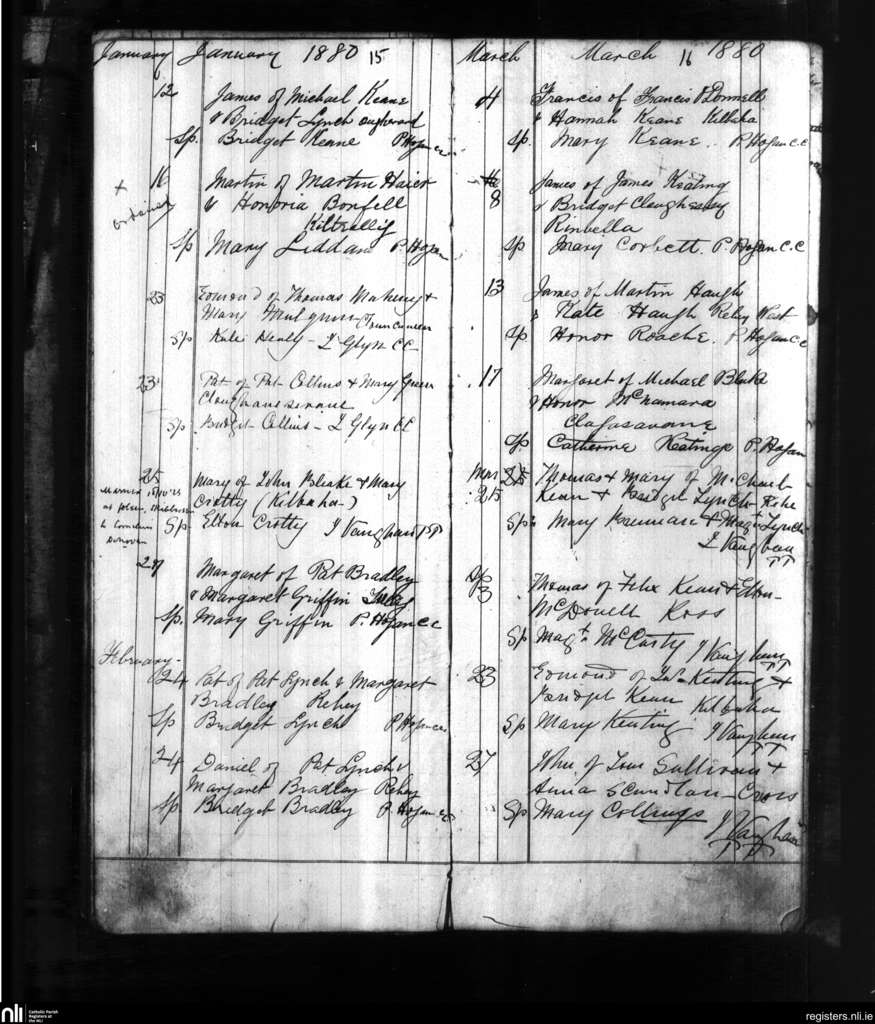 January January 1880 15
12 James of Michael Keane
& Bridget Lynch
Sp. Bridget Keane P Hogan cc
+ 16 Martin of Martin Haier
& Honoria Bonfell
Kiltrellig
Sp Mary Liddan P. Hogan
23 Edmond of Thomas Mahony &
Mary
Sp Kate Henly - J Glyn CC
23 Pat of Pat Collins & Mary Green
Sp Bridget Collins - J Glyn CC
25 Mary of John Bleake & Mary
Crotty (Kilbaha -)
Sp Ellen Crotty J Vaughan PP
Married
to Cornelius
Donovan
27 Margaret of Pat Bradley
& Margaret Griffin
Sp. Mary Griffin P. Hogan CC
February -
24 Pat of Pat Lynch & Margaret
Bradley Rehey
Sp Bridget Lynch P Hogan cc
24 Daniel of Pat Lynch &
Margaret Bradley Rehey
Sp Bridget Bradley P Hogan CC
March March 16 1880
4 Francis of Francis O'Donnell
& Hannah Keane Kilbaha
Sp. Mary Keane. P. Hogan C.C
8 James of James Keating
& Bridget Cloughessy
Rinbella
Sp Mary Corbett. P. Hogan C.C
13 James of Martin Haugh
& Kate Haugh Rehy West
Sp Honor Roache. P Hogan CC
17 Margaret of Michael Blake
& Honor McNamara
Sp. Catherine Keatinge P. Hogan
Mar 25 Thomas & Mary of Michael
25 Kean & Bridget Lynch
Sp: Mary & Magt Lynch
J Vaughan
PP
3 Thomas of Felix Kean & Ellen
McDonell Ross
Sp Magt McCarty J Vaughan
PP
23 Edmond of Jas Keating &
Bridget Kean Kilbaha
Sp Mary Keating J Vaughan
PP
27 John of Tim Sullivan &
Anna Scanlan - Cross
Sp Mary Collings
J Vaughan
PP
nli Catholic Parish
Registers at
the NLI
registers.nli.ie